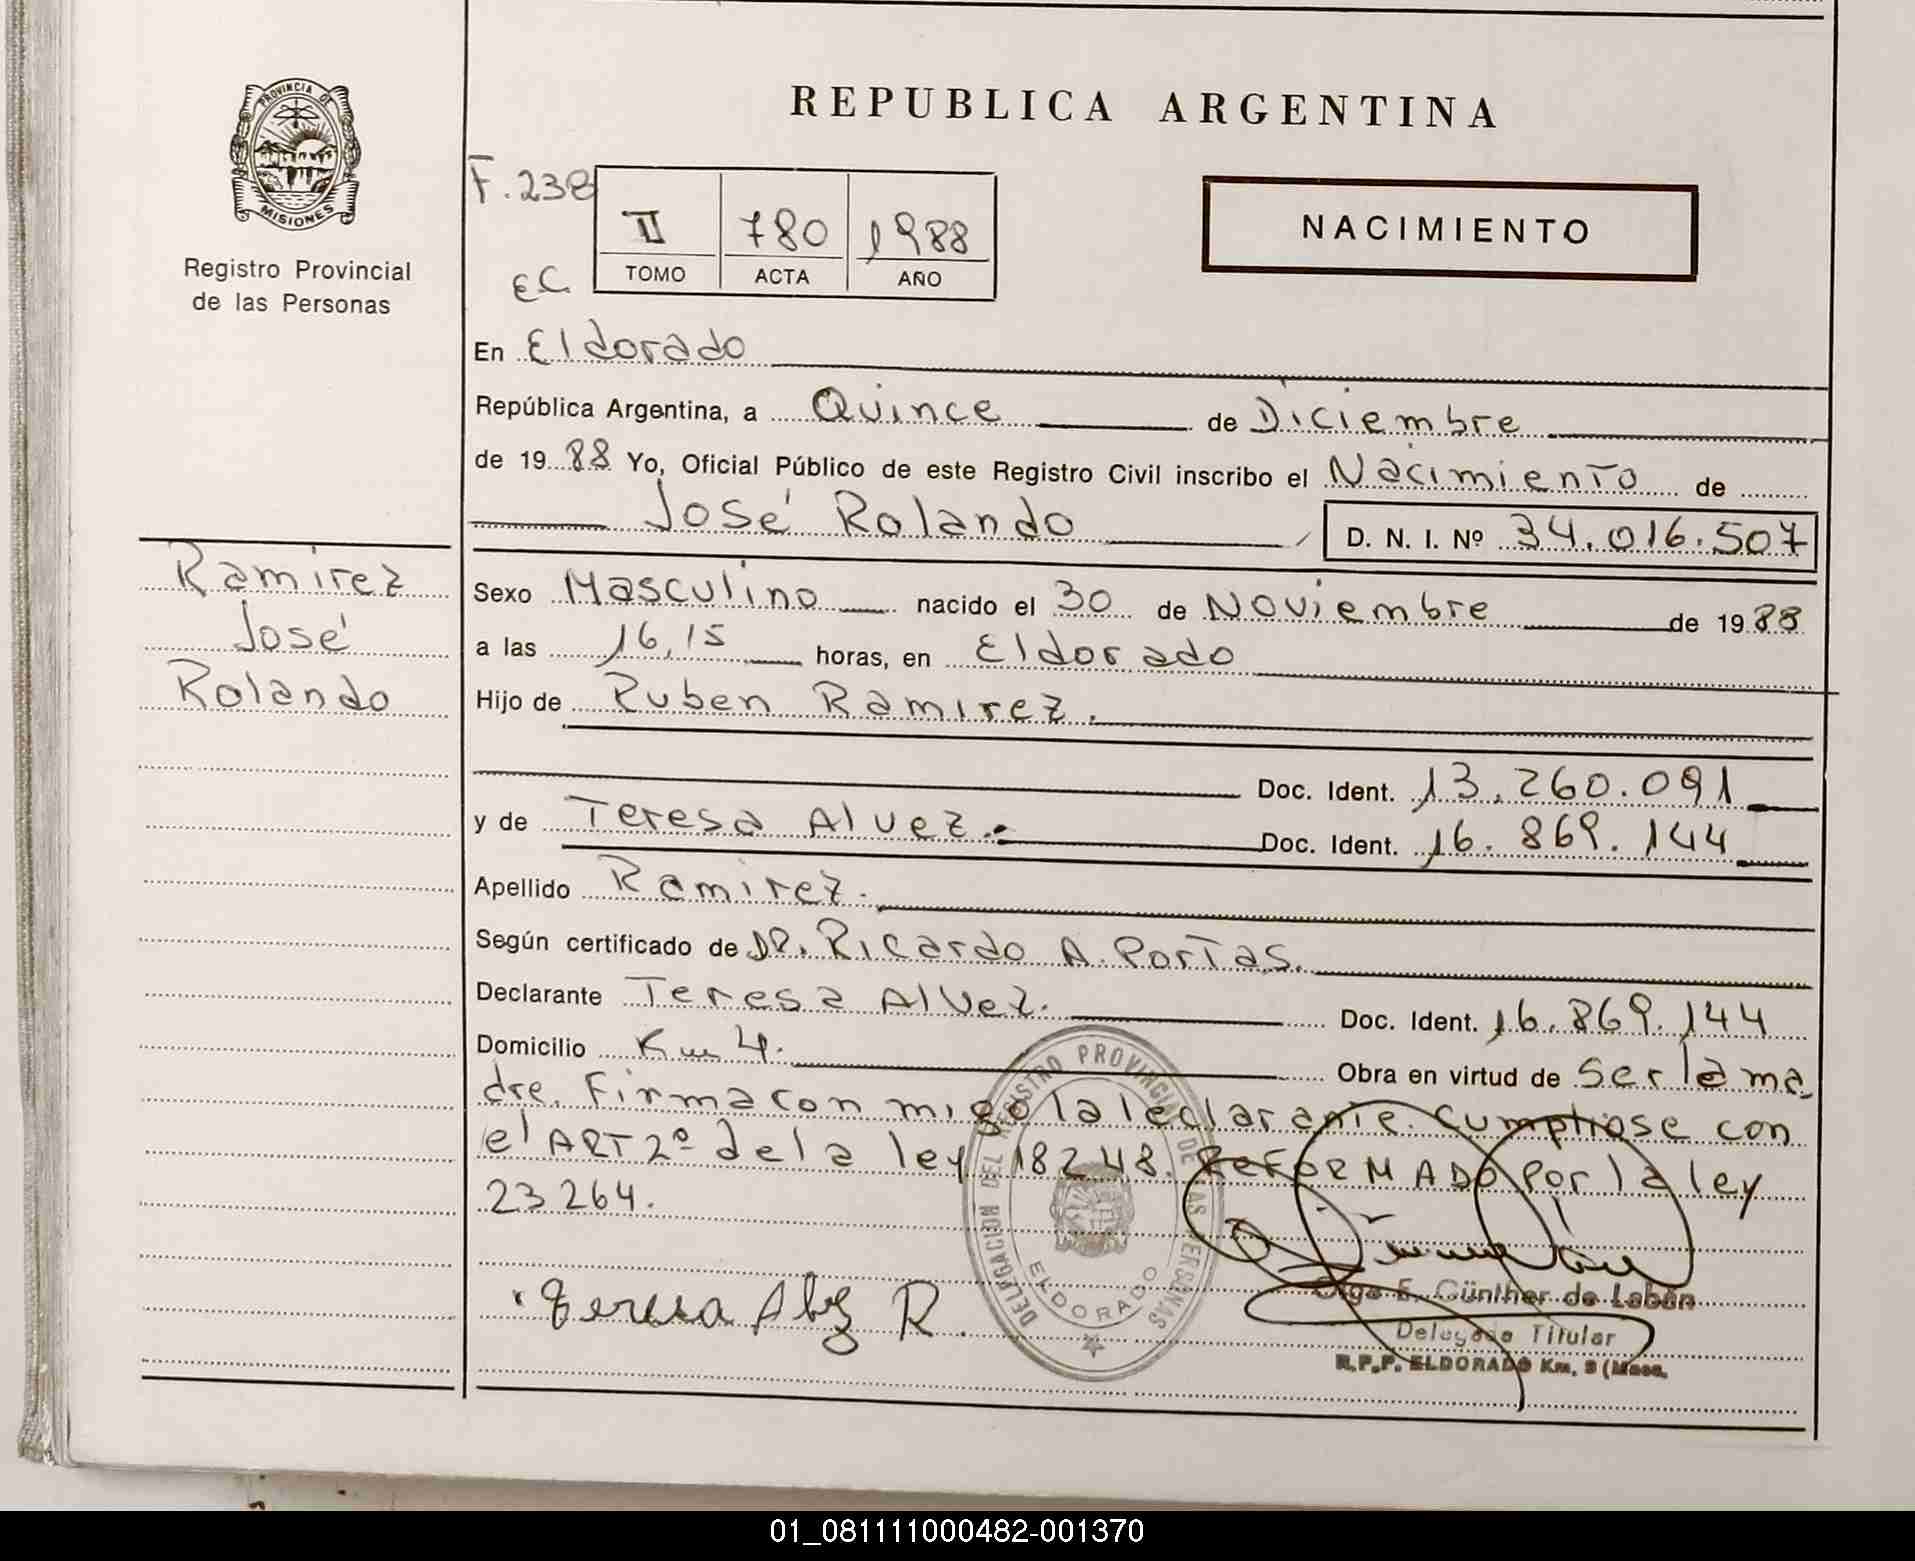 PROVINCIA DE
MISIONES
Registro Provincial
de las Personas
REPUBLICA ARGENTINA
F. 238
II 780 1988
TOMO ACTA AÑO
NACIMIENTO
EC
En Eldorado
República Argentina, a Quince de Diciembre
de 1988 Yo, Oficial Público de este Registro Civil inscribo el Nacimiento de
José Rolando D. N. I. Nº 34.016.507
Ramirez
José
Rolando
Sexo Masculino nacido el 30 de Noviembre de 1988
a las 16,15 horas, en Eldorado
Hijo de Ruben Ramirez.
Doc. Ident. 13.260.091
y de Teresa Alvez. Doc. Ident. 16.869.144
Apellido Ramirez.
Según certificado de DR. Ricardo A. Portas.
Declarante Teresa Alvez. Doc. Ident. 16.869.144
Domicilio Km 4. Obra en virtud de Ser la ma
dre. Firma con migo la leclarante. Cumpliose con
el ART 2º de la ley 18248. REFORMADO Por la ley
23264.
DELEGACION DEL REGISTRO PROVINCIAL DE LAS PERSONAS
ELDORADO
Teresa Alvez R.
Olga E. Günther de Labán
Delegada Titular
R.P.P. ELDORADO Km. 9 (Mnes.
01_081111000482-001370